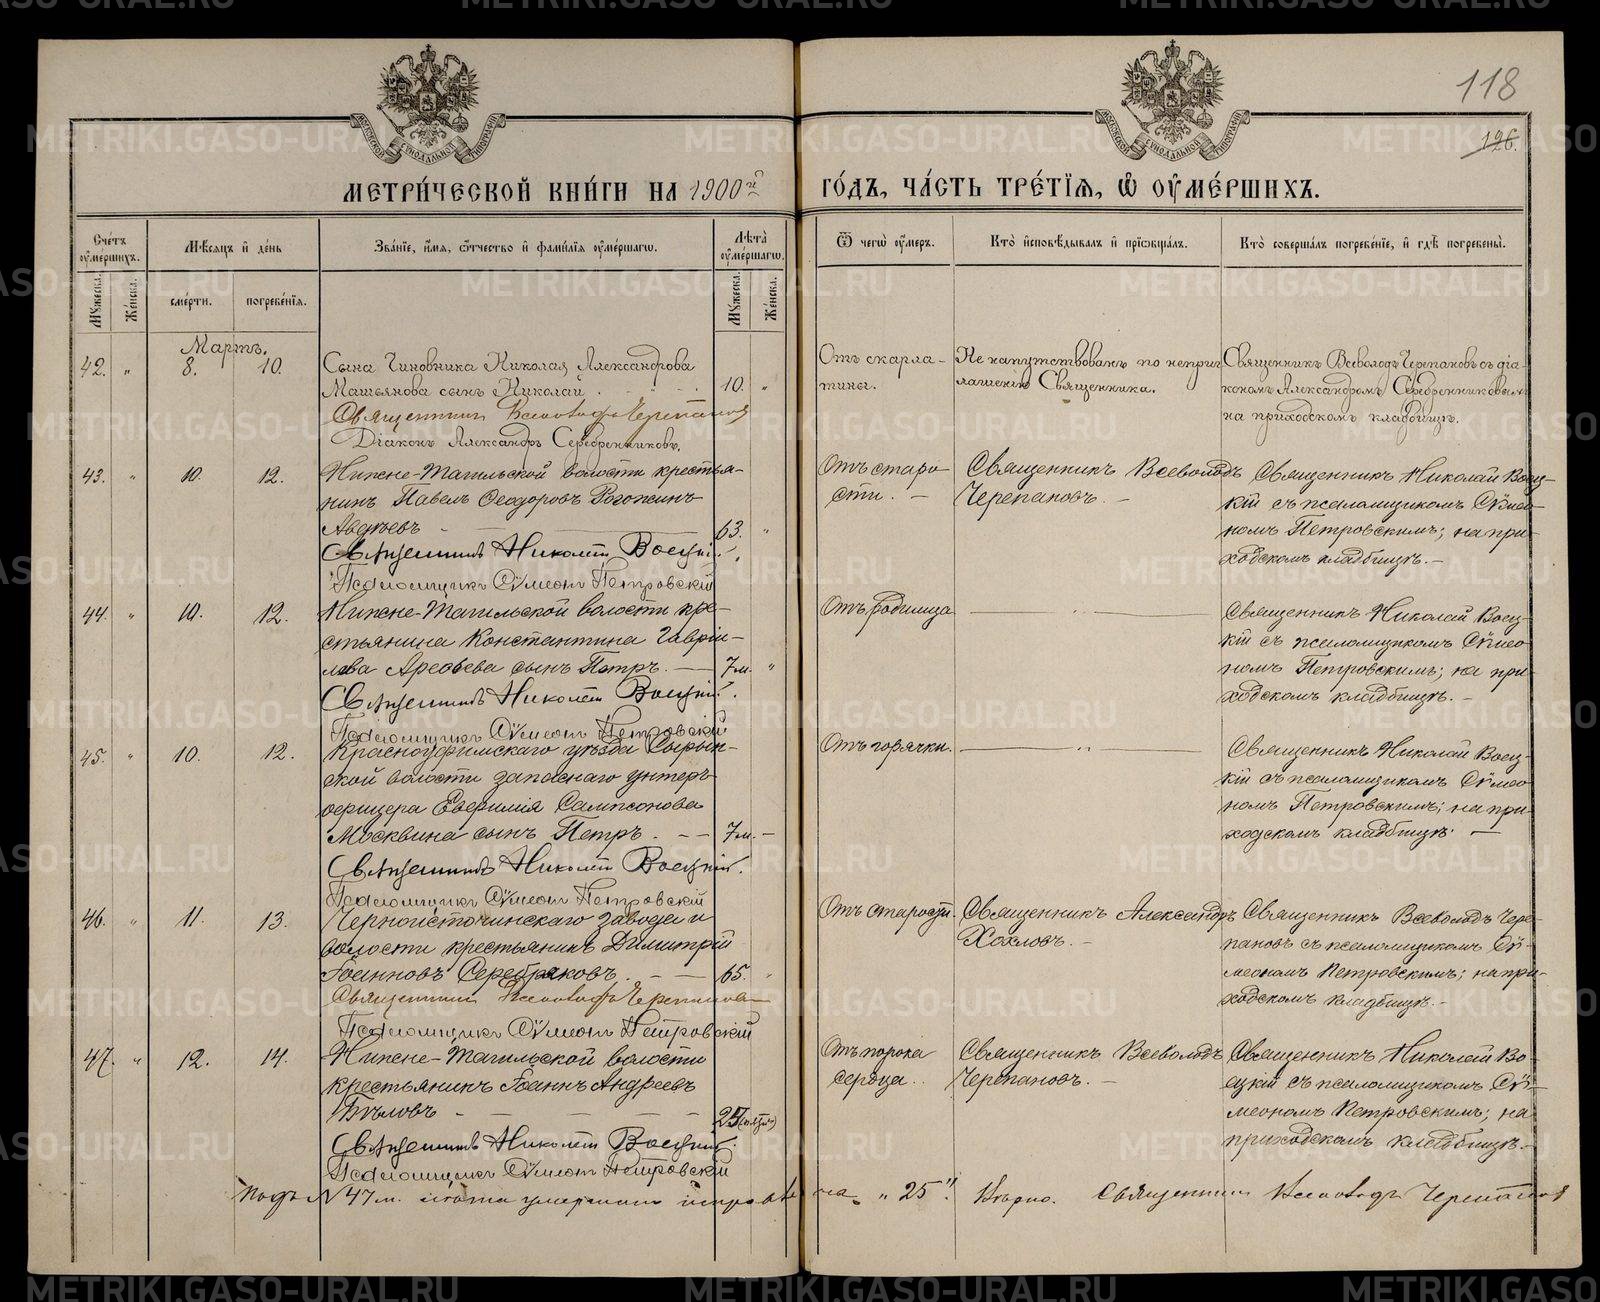 118
126.
МЕТРИ́ЧЕСКОЙ КНИ́ГИ НА 1900й ГО́ДЪ, ЧА́СТЬ ТРЕ́ТІѦ, Ѡ҆ ОУ҆МЕ́РШИХЪ.
МОСКОВСКОЙ СѴНОДАЛЬНОЙ ТИПОГРАФІИ
МОСКОВСКОЙ СѴНОДАЛЬНОЙ ТИПОГРАФІИ
Сче́тъ оу҆ме́ршихъ.
Мꙋ́жеска.
Же́нска.
Мѣ́сяцъ и҆ де́нь
сме́рти.
погребе́нїѧ.
Зва́нїе, и҆́мѧ, ѻ҆́тчество и҆ фами́лїѧ оу҆ме́ршагѡ.
Лѣ́та оу҆ме́ршагѡ.
Мꙋ́жеска.
Же́нска.
Ѿ чегѡ̀ оу҆́меръ.
Кто̀ и҆сповѣ́дывалъ и҆ прїѡбща́лъ.
Кто̀ соверша́лъ погребе́нїе, и҆ гдѣ̀ погребены̀.
Мартъ.
42. " 8. 10.
Сына Чиновника Николая Александрова
Машьянова сынъ Николай . 10. "
Священникъ Всеволодъ Черепановъ
Діаконъ Александръ Серебренниковъ.
Отъ скарла-
тины.
Не напутствованъ по неприг
лашенію Священника.
Священникъ Всеволодъ Черепановъ съ діа-
кономъ Александромъ Серебренниковымъ
на приходскомъ кладбищѣ.
43. " 10. 12.
Нижне-Тагильской волости крестья-
нинъ Павелъ Ѳеодоровъ Рогожинъ
Авдѣевъ 63. "
Священникъ Николай Воецкій.
Псаломщикъ Сѵмеонъ Петровскій
Отъ старо-
сти. —
Священникъ Всеволодъ
Черепановъ. —
Священникъ Николай Воец-
кій съ псаломщикомъ Сѵмео-
номъ Петровскимъ; на при-
ходскомъ кладбищѣ. —
44. " 10. 12.
Нижне-Тагильской волости кре-
стьянина Константина Гаврі-
лова Арефьева сынъ Петръ. — 7 м. "
Священникъ Николай Воецкій.
Псаломщикъ Сѵмеонъ Петровскій
Отъ родимца
— " —
Священникъ Николай Воец-
кій съ псаломщикомъ Сѵмео-
номъ Петровскимъ; на при-
ходскомъ кладбищѣ. —
45. " 10. 12.
Красноуфимскаго уѣзда Сырин-
ской волости запаснаго унтеръ
офицера Евфимія Сампсонова
Москвина сынъ Петръ. — — 7 м. —
Священникъ Николай Воецкій.
Псаломщикъ Сѵмеонъ Петровскій
Отъ горячки.
— " —
Священникъ Николай Воец-
кій съ псаломщикомъ Сѵмео-
номъ Петровскимъ; на при-
ходскомъ кладбищѣ. —
46. " 11. 13.
Черноисточинскаго завода и
волости крестьянинъ Димитрій
Іоанновъ Серебряковъ. — — 65. "
Священникъ Всеволодъ Черепановъ
Псаломщикъ Сѵмеонъ Петровскій
Отъ старости.
Священникъ Александръ
Хохловъ. —
Священникъ Всеволодъ Чере-
пановъ съ псаломщикомъ Сѵ-
меономъ Петровскимъ; на при-
ходскомъ кладбищѣ. —
47. " 12. 14.
Нижне-Тагильской волости
крестьянинъ Іоаннъ Андреевъ
Бѣловъ — — — — 25
Священникъ Николай Воецкій.
Псаломщикъ Сѵмеонъ Петровскій
Отъ порока
сердца.
Священникъ Всеволодъ
Черепановъ. —
Священникъ Николай Во-
ецкій съ псаломщикомъ Сѵ-
меономъ Петровскимъ; на
приходскомъ кладбищѣ. —
Подъ № 47 м. лѣта умершаго исправлены на „25". Вѣрно. Священникъ Всеволодъ Черепановъ
METRIKI.GASO-URAL.RU